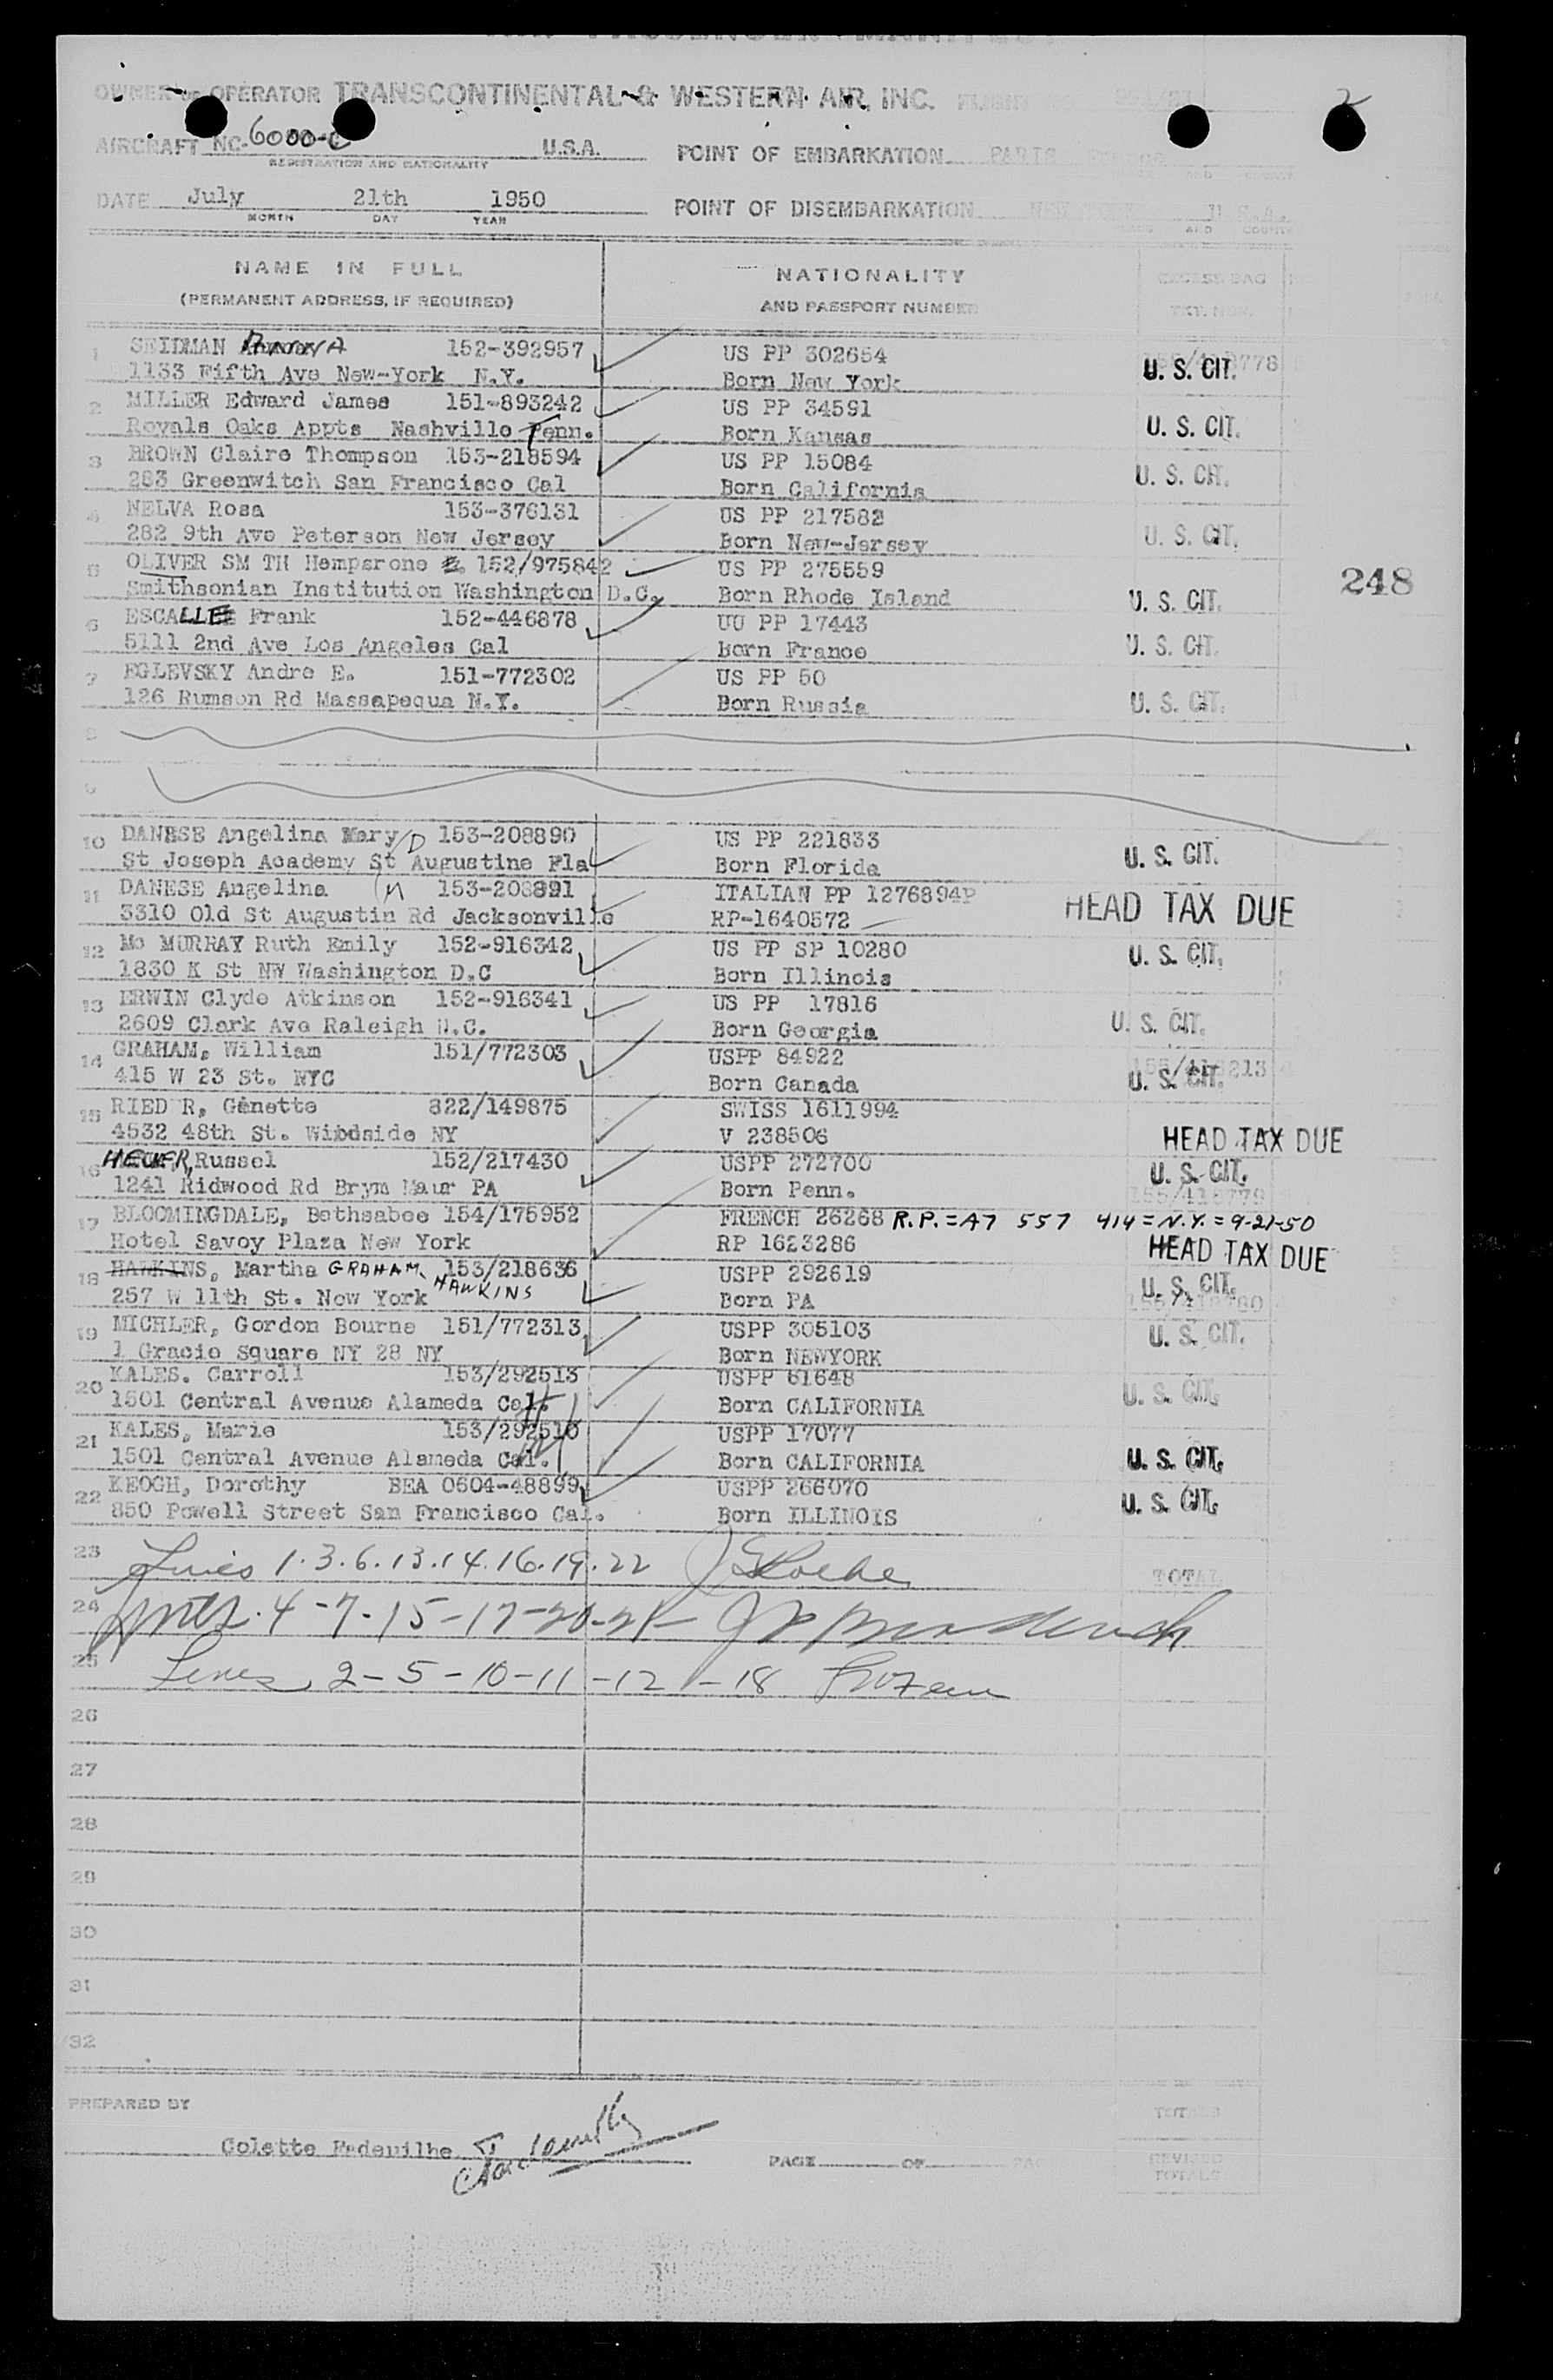 OWNER OR OPERATOR TRANSCONTINENTAL & WESTERN AIR, INC. FLIGHT NO.
2
AIRCRAFT NC-6000-C U.S.A. POINT OF EMBARKATION PARIS France
REGISTRATION AND NATIONALITY
DATE July 21th 1950 POINT OF DISEMBARKATION NEW YORK U.S.A.
MONTH DAY YEAR PLACE AND COUNTRY
NAME IN FULL NATIONALITY EXCESS BAG
(PERMANENT ADDRESS, IF REQUIRED) AND PASSPORT NUMBER TKT. NBR.
1 SEIDMAN 152-392957 US PP 302654
1133 Fifth Ave New-York N.Y. Born New York U. S. CIT.
2 MILLER Edward James 151-893242 US PP 34591
Royals Oaks Appts Nashville Tenn. Born Kansas U. S. CIT.
3 BROWN Claire Thompson 153-218594 US PP 15084
283 Greenwitch San Francisco Cal Born California U. S. CIT.
4 NELVA Rosa 153-376131 US PP 217582
282 9th Ave Peterson New Jersey Born New-Jersey U. S. CIT.
5 OLIVER SM TH Hempsrone 152/975842 US PP 275559
248
Smithsonian Institution Washington D.C. Born Rhode Island U. S. CIT.
6 ESCALLE Frank 152-446878 UU PP 17443
5111 2nd Ave Los Angeles Cal Born France U. S. CIT.
7 EGLEVSKY Andre E. 151-772302 US PP 50
126 Rumson Rd Massapequa N.Y. Born Russia U. S. CIT.
8
9
10 DANESE Angelina Mary D 153-208890 US PP 221833
St Joseph Academy St Augustine Fla Born Florida U. S. CIT.
11 DANESE Angelina (M 153-208891 ITALIAN PP 1276894P
3310 Old St Augustin Rd Jacksonville RP-1640572 HEAD TAX DUE
12 Mc MURRAY Ruth Emily 152-916342 US PP SP 10280 U. S. CIT.
1830 K St NW Washington D.C Born Illinois
13 ERWIN Clyde Atkinson 152-916341 US PP 17816
2609 Clark Ave Raleigh N.C. Born Georgia U. S. CIT.
14 GRAHAM, William 151/772303 USPP 84922
415 W 23 St. NYC Born Canada U. S. CIT.
15 RIED R, Genette 322/149875 SWISS 1611994
4532 48th St. Wibdside NY V 238506 HEAD TAX DUE
16 HECKER, Russel 152/217430 USPP 272700 U. S. CIT.
1241 Ridwood Rd Brym Maur PA Born Penn.
17 BLOOMINGDALE, Bethsabee 154/175952 FRENCH 26268 R.P.=A7 557 414=N.Y.=9-21-50
Hotel Savoy Plaza New York RP 1623286 HEAD TAX DUE
18 HAWKINS, Martha GRAHAM 153/218636 USPP 292619 U. S. CIT.
HAWKINS
257 W 11th St. New York Born PA
19 MICHLER, Gordon Bourne 151/772313 USPP 305103 U. S. CIT.
1 Gracie Square NY 28 NY Born NEWYORK
20 KALES. Carroll 153/292513 USPP 61648
1501 Central Avenue Alameda Cal. Born CALIFORNIA U. S. CIT.
21 KALES, Marie 153/292510 USPP 17077
1501 Central Avenue Alameda Cal. Born CALIFORNIA U. S. CIT.
22 KEOGH, Dorothy BEA 0604-48899 USPP 266070
850 Powell Street San Francisco Cal. Born ILLINOIS U. S. CIT.
23 Lines 1.3.6.13.14.16.19.22 TOTAL
24 Lines. 4-7-15-17-20-21-
25 Lines 2-5-10-11-12-18
26
27
28
29
30
31
32
PREPARED BY TOTALS
Colette
PAGE OF PAGES REVISED
TOTALS